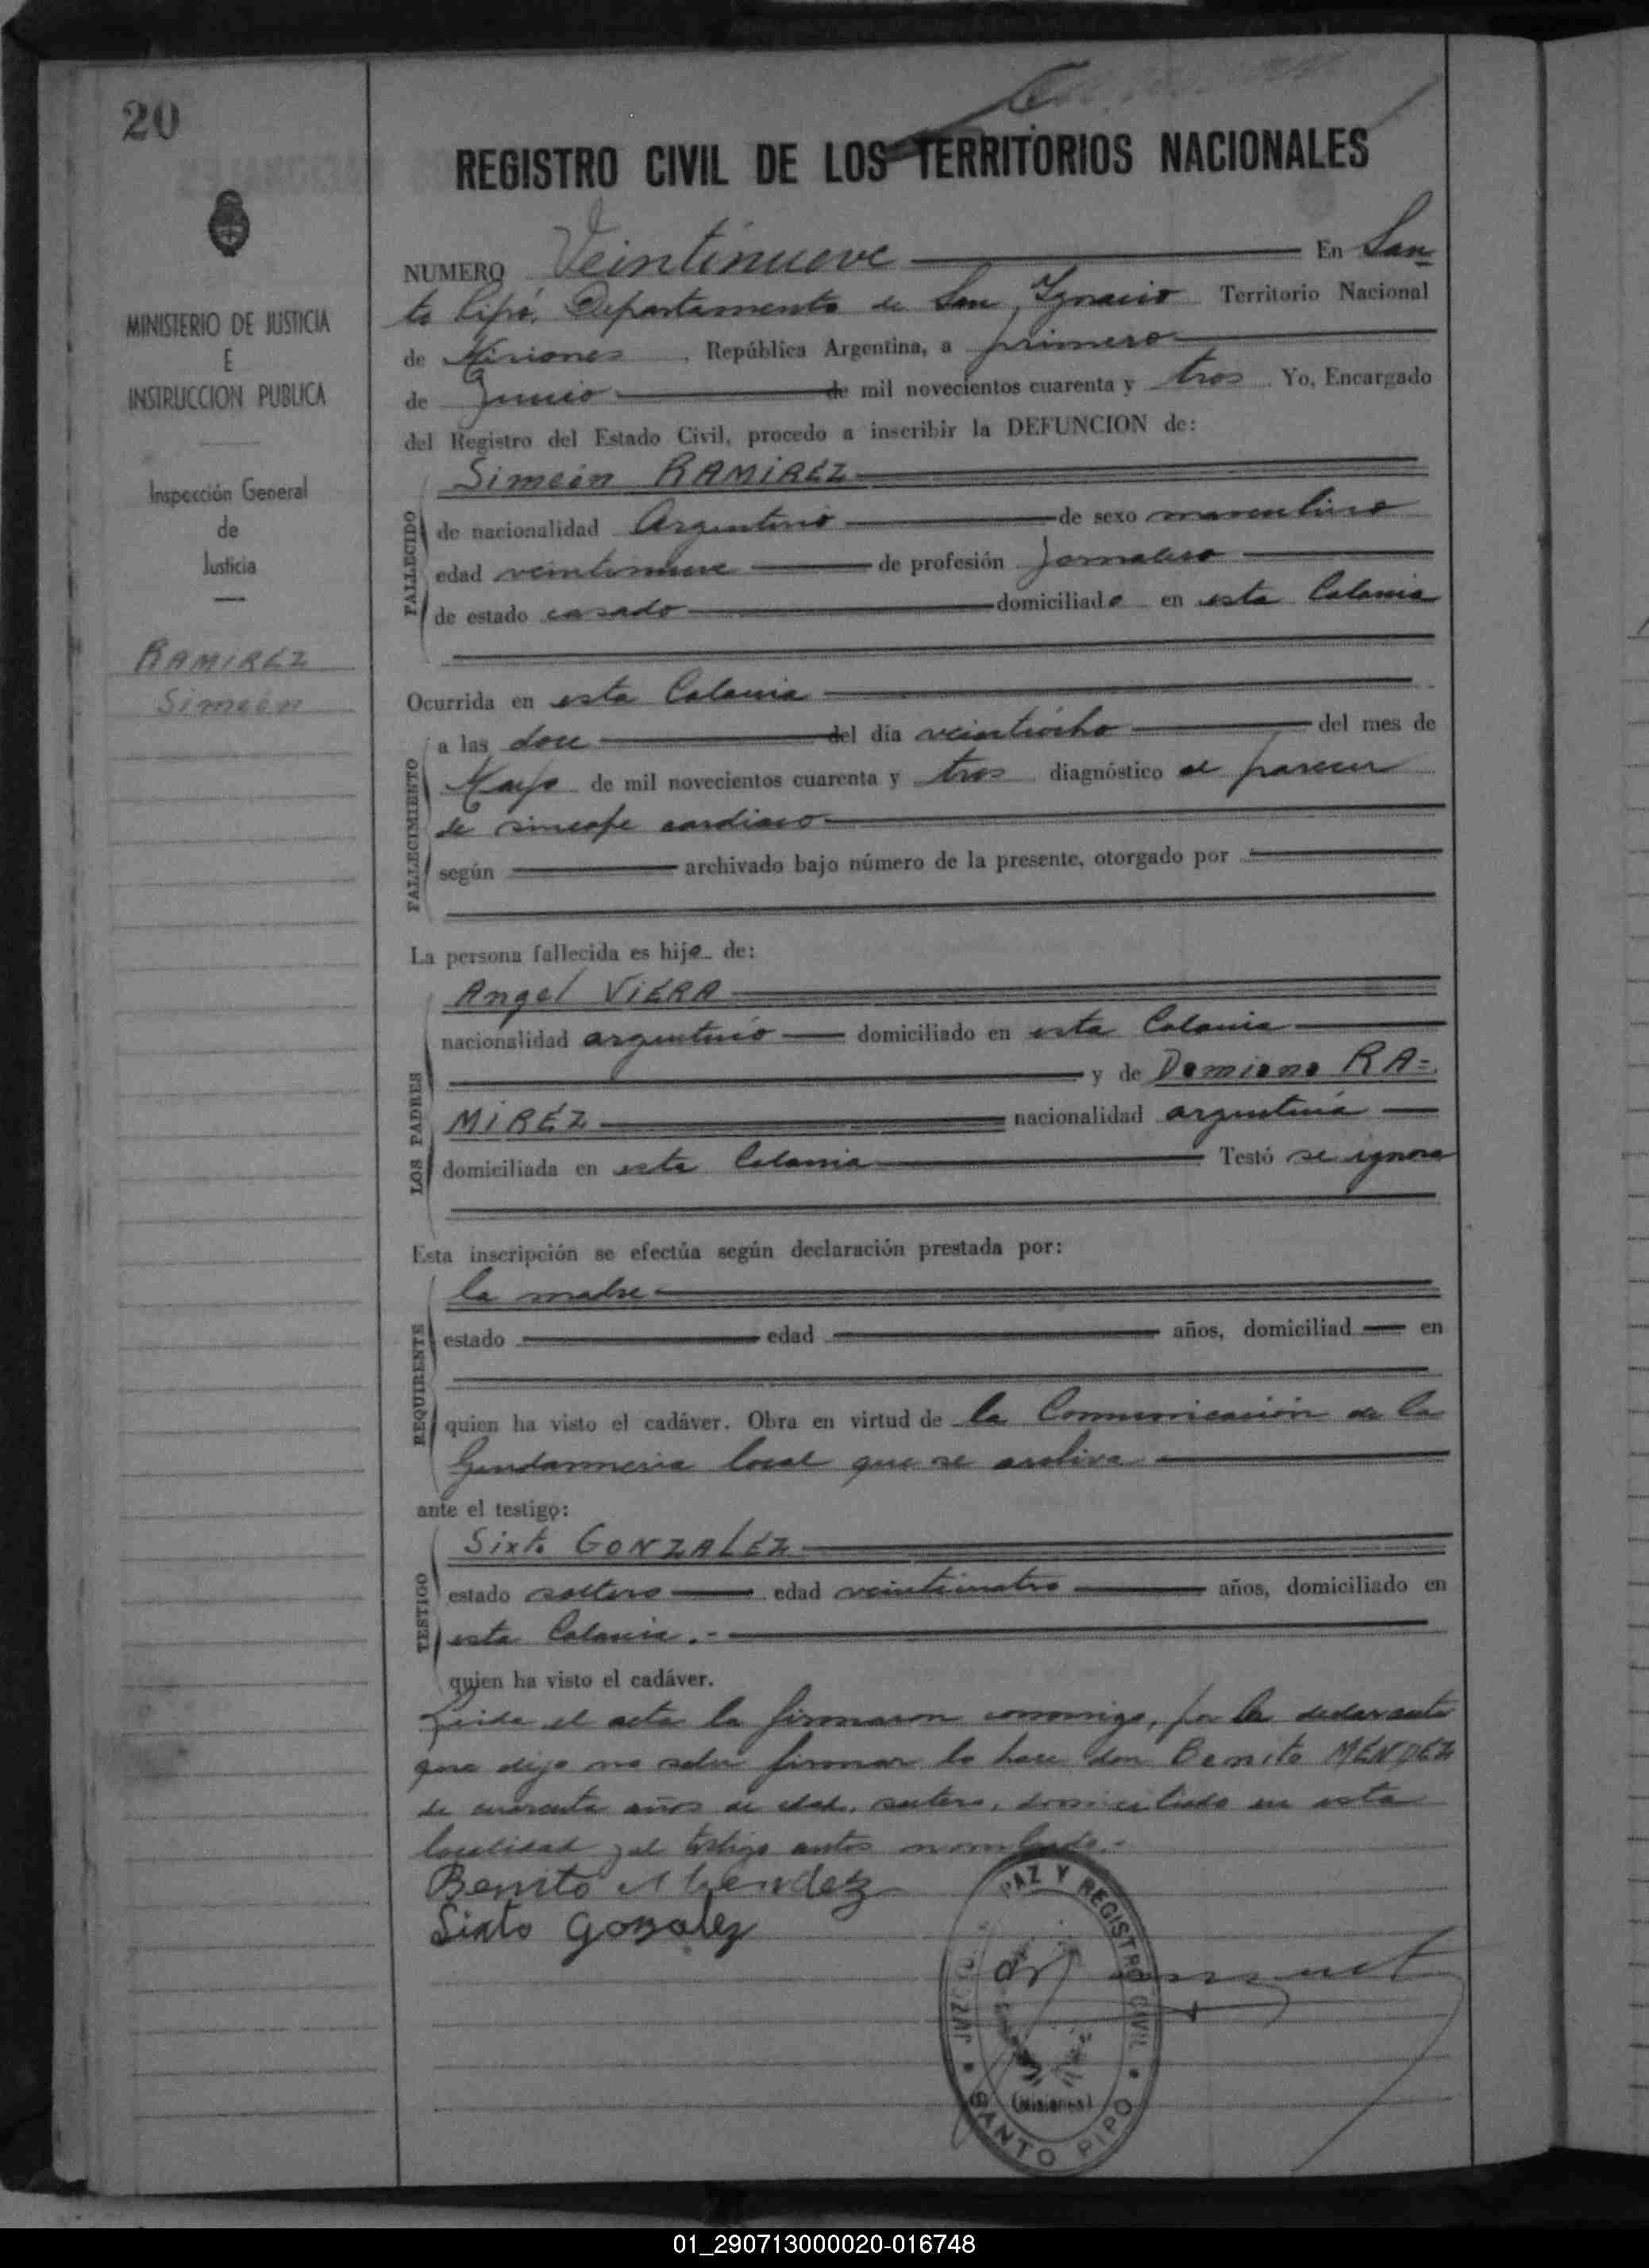 20
REGISTRO CIVIL DE LOS TERRITORIOS NACIONALES
MINISTERIO DE JUSTICIA
E
INSTRUCCION PUBLICA
Inspección General
de
Justicia
RAMIREZ
Simeón
NUMERO Veintinueve En San
to Pipó, Departamento de San Ignacio Territorio Nacional
de Misiones, República Argentina, a primero
de Junio de mil novecientos cuarenta y tres. Yo, Encargado
del Registro del Estado Civil, procedo a inscribir la DEFUNCION de:
FALLECIDO
Simeón RAMIREZ
de nacionalidad Argentino de sexo masculino
edad veintinueve de profesión Jornalero
de estado casado domiciliado en esta Colonia
Ocurrida en esta Colonia
FALLECIMIENTO
a las doce del día veintiocho del mes de
Mayo de mil novecientos cuarenta y tres diagnóstico al parecer
de sincope cardiaco
según archivado bajo número de la presente, otorgado por
La persona fallecida es hijo de:
LOS PADRES
Angel VIERA
nacionalidad argentino domiciliado en esta Colonia
y de Damiana RA=
MIREZ nacionalidad argentina
domiciliada en esta Colonia Testó se ignora
Esta inscripción se efectúa según declaración prestada por:
REQUIRENTE
la madre
estado edad años, domiciliad en
quien ha visto el cadáver. Obra en virtud de la Comunicación de la
Gendarmeria local que se archiva
ante el testigo:
TESTIGO
Sixto GONZALEZ
estado soltero edad veinticuatro años, domiciliado en
esta Colonia.-
quien ha visto el cadáver.
Leida el acta la firmaron conmigo, por la declarante
que dijo no saber firmar lo hace don Benito MENDEZ
de cuarenta años de edad, soltero, domiciliado en esta
localidad y el testigo antes nombrado.-
Benito Mendez
Sixto Gonzalez
PAZ Y REGISTRO CIVIL
JUZGADO
(Misiones)
SANTO PIPO
01_290713000020-016748